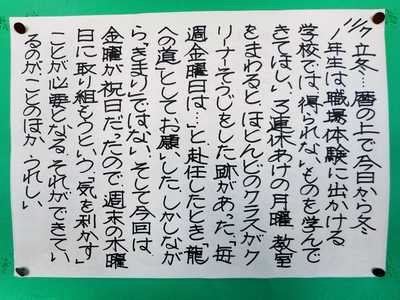 11/7 立冬…暦の上で今日から冬
1年生は、職場体験に出かける
学校では、得られないものを学んで
きてほしい。3連休あけの月曜、教室
をまわると、ほとんどのクラスがク
リーナーそうじをした跡があった。「毎
週金曜日は…」と、赴任したとき「龍
への道」としてお願いした。しかしなが
ら、きまりではない。そして今回は、
金曜が祝日だったので、週末の木曜
日に取り組もうという「気を利かす」
ことが必要となる。それができてい
るのが、ことのほか、うれしい。